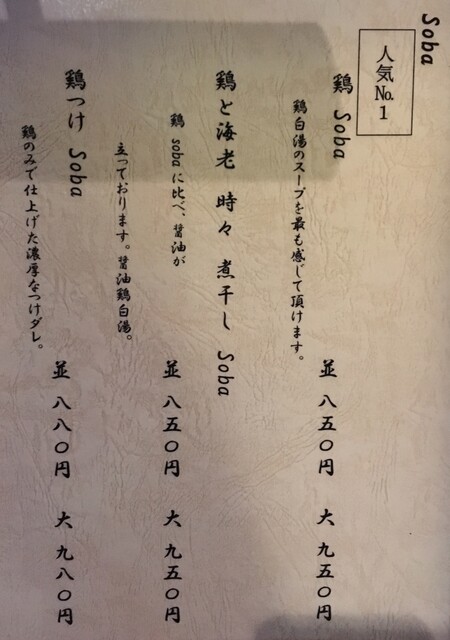 Soba
人気№1
鶏 Soba
鶏白湯のスープを最も感じて頂けます。
並 八五〇円 大 九五〇円
鶏と海老 時々 煮干し Soba
鶏 soba に比べ、醤油が
立っております。醤油鶏白湯。
並 八五〇円 大 九五〇円
鶏つけ Soba
鶏のみで仕上げた濃厚なつけダレ。
並 八八〇円 大 九八〇円